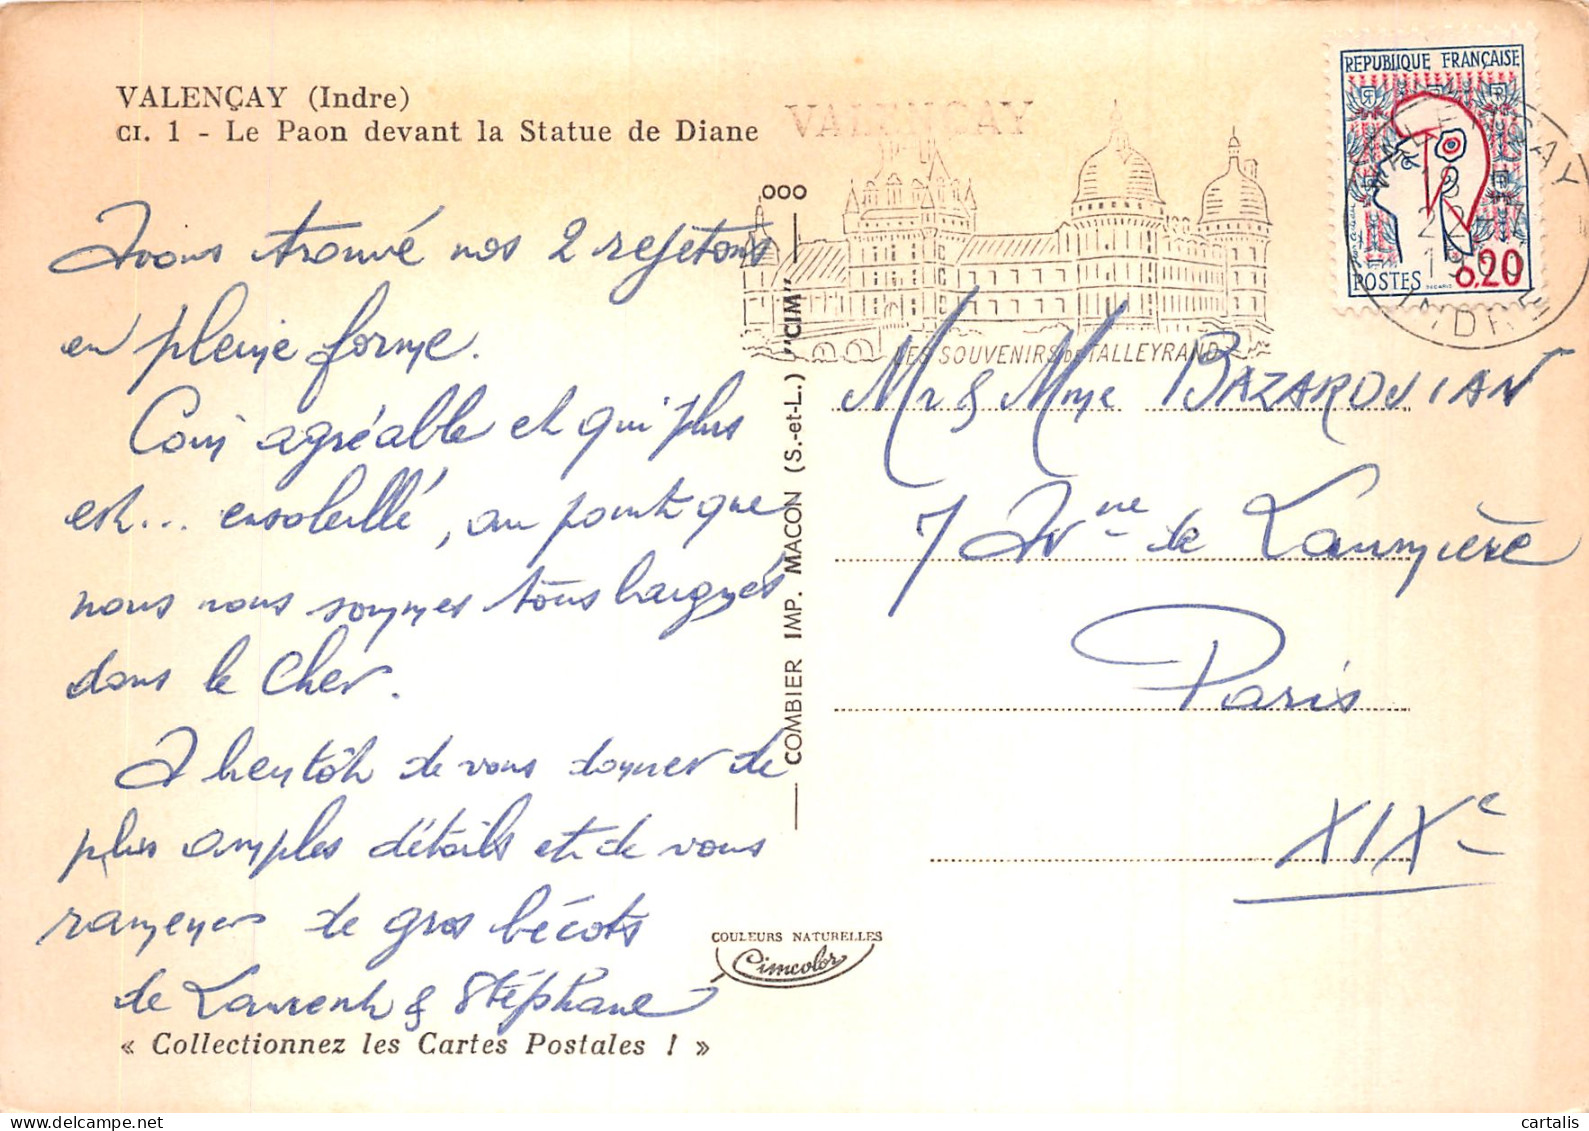 VALENÇAY (Indre)
CI. 1 - Le Paon devant la Statue de Diane
Avons trouvé nos 2 rejetons
en pleine forme.
Coin agréable et qui plus
est... ensoleillé, au point que
nous nous sommes tous baignés
dans le Cher.
A bientôt de vous donner de
plus amples détails et de vous
ramener de gros bécots
de Laurent & Stéphane
« Collectionnez les Cartes Postales ! »
COMBIER IMP. MACON (S.-et-L.) "CIM"
COULEURS NATURELLES
Cimcolor
VALENÇAY
LES SOUVENIRS DE TALLEYRAND
REPUBLIQUE FRANÇAISE
POSTES
0,20
VALENÇAY
INDRE
Mr & Mme BAZAROJIAN
7 Avnue de Laumière
Paris
XIXe
cartalis
www.delcampe.net